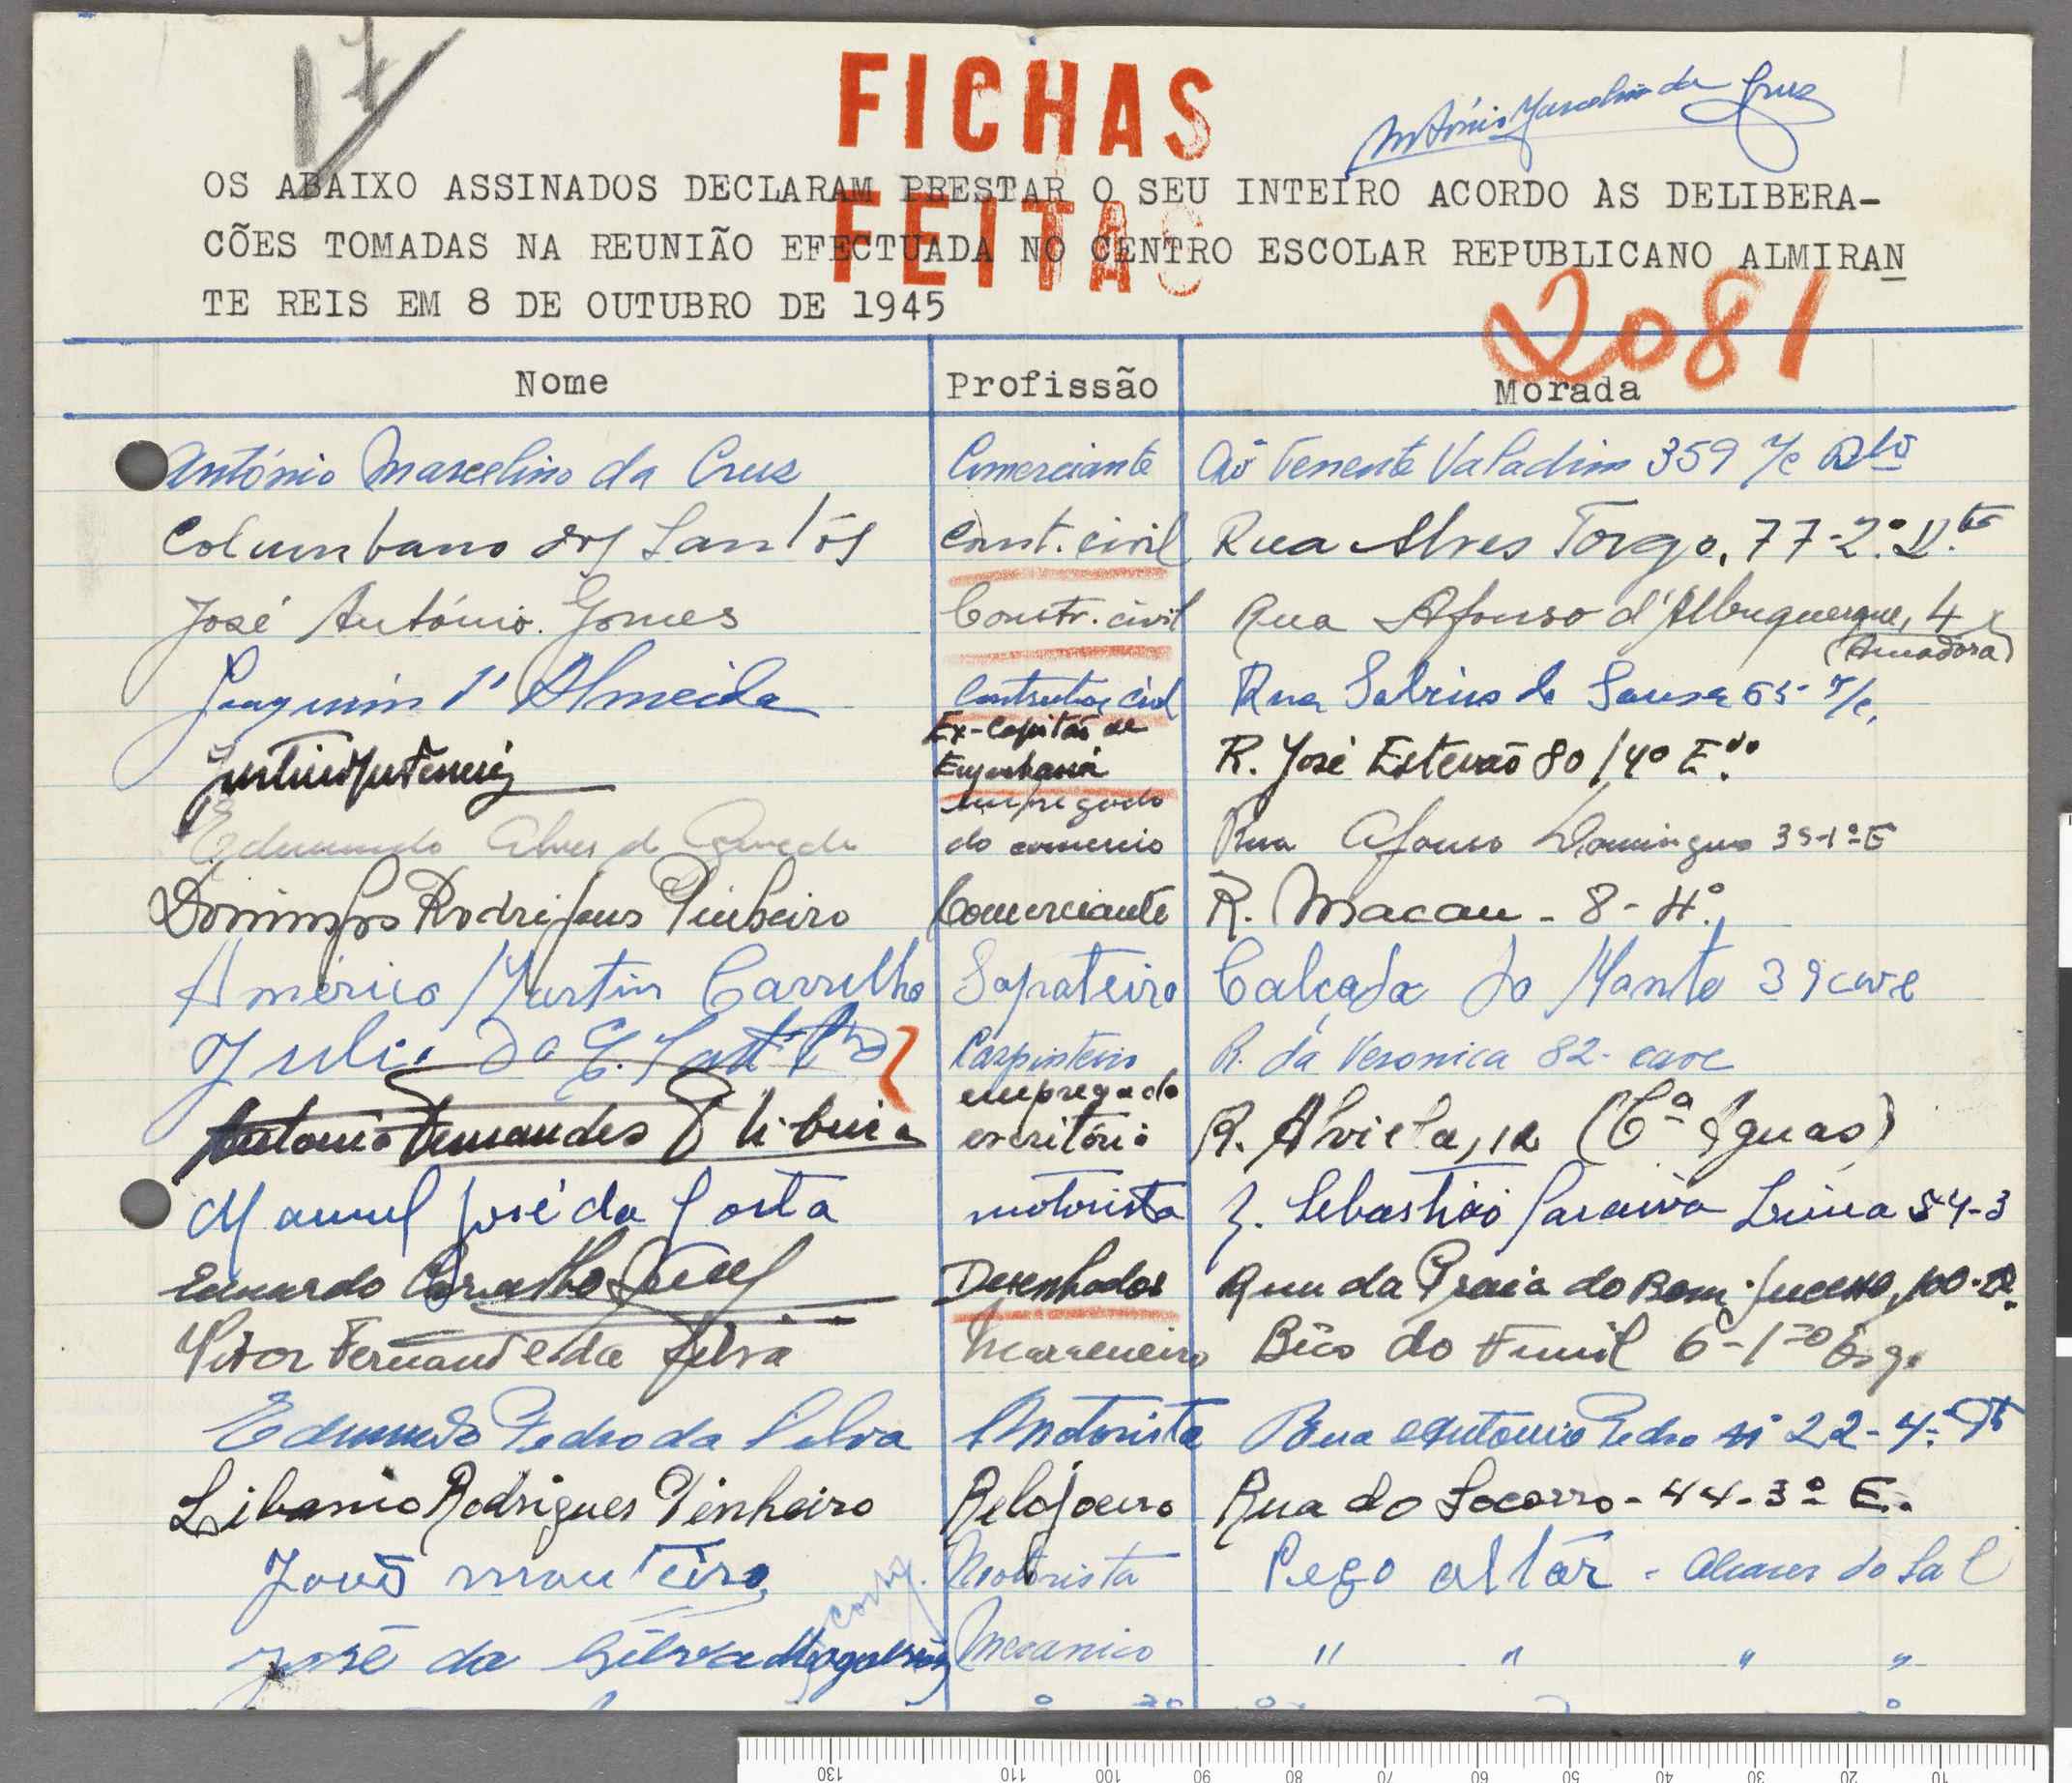 17
FICHAS
António Marcelino da Cruz
OS ABAIXO ASSINADOS DECLARAM PRESTAR O SEU INTEIRO ACORDO AS DELIBERA-
FEITAS
CÕES TOMADAS NA REUNIÃO EFECTUADA NO CENTRO ESCOLAR REPUBLICANO ALMIRAN
TE REIS EM 8 DE OUTUBRO DE 1945
2081
Nome Profissão Morada
António Marcelino da Cruz Comerciante Av Tenente Valadim 359 r/c Dto
Columbano dos Santos Const. civil Rua Alves Torgo, 77-2.º D.to
José António Gomes Constr. civil Rua Afonso d'Albuquerque, 4
(Amadora)
Joaquim d'Almeida Construtor Civil Rua Sabino de Sousa 65- r/c.
Ex-Capitão de
Engenharia R. José Estevão 80 / 4º E.do
empregado
Edmundo Alves de Azevedo do comercio Rua Afonso Domingues 35-1º E
Domingos Rodrigues Pinheiro Comerciante R. Macau - 8 - 4º.
Américo Martins Carrilho Sapateiro Calçada do Monte 39 cave
Julio da Carpinteiro R. da Veronica 82- cave
empregado
Antonio Fernandes escritório R. Alviela, 12 (C.ª Aguas)
Manuel José da Costa motorista R. Sebastião Saraiva Lima 54-3
Eduardo Carvalho Desenhador Rua da Praia do Bom Sucesso, 100-
Vitor Fernande da Silva Marceneiro Bêco do Funil 6-1º Esq.
Edmundo Pedro da Silva Motorista Rua Antonio Pedro nº 22-4º Dt
Libanio Rodrigues Pinheiro Relojoeiro Rua do Socorro - 44-3º E.
João monteiro Motorista Pego altar - Alcacer do Sal
José da Silva Mecanico " " " "
130 110 100 90 80 70 60 50 40 30 20 10